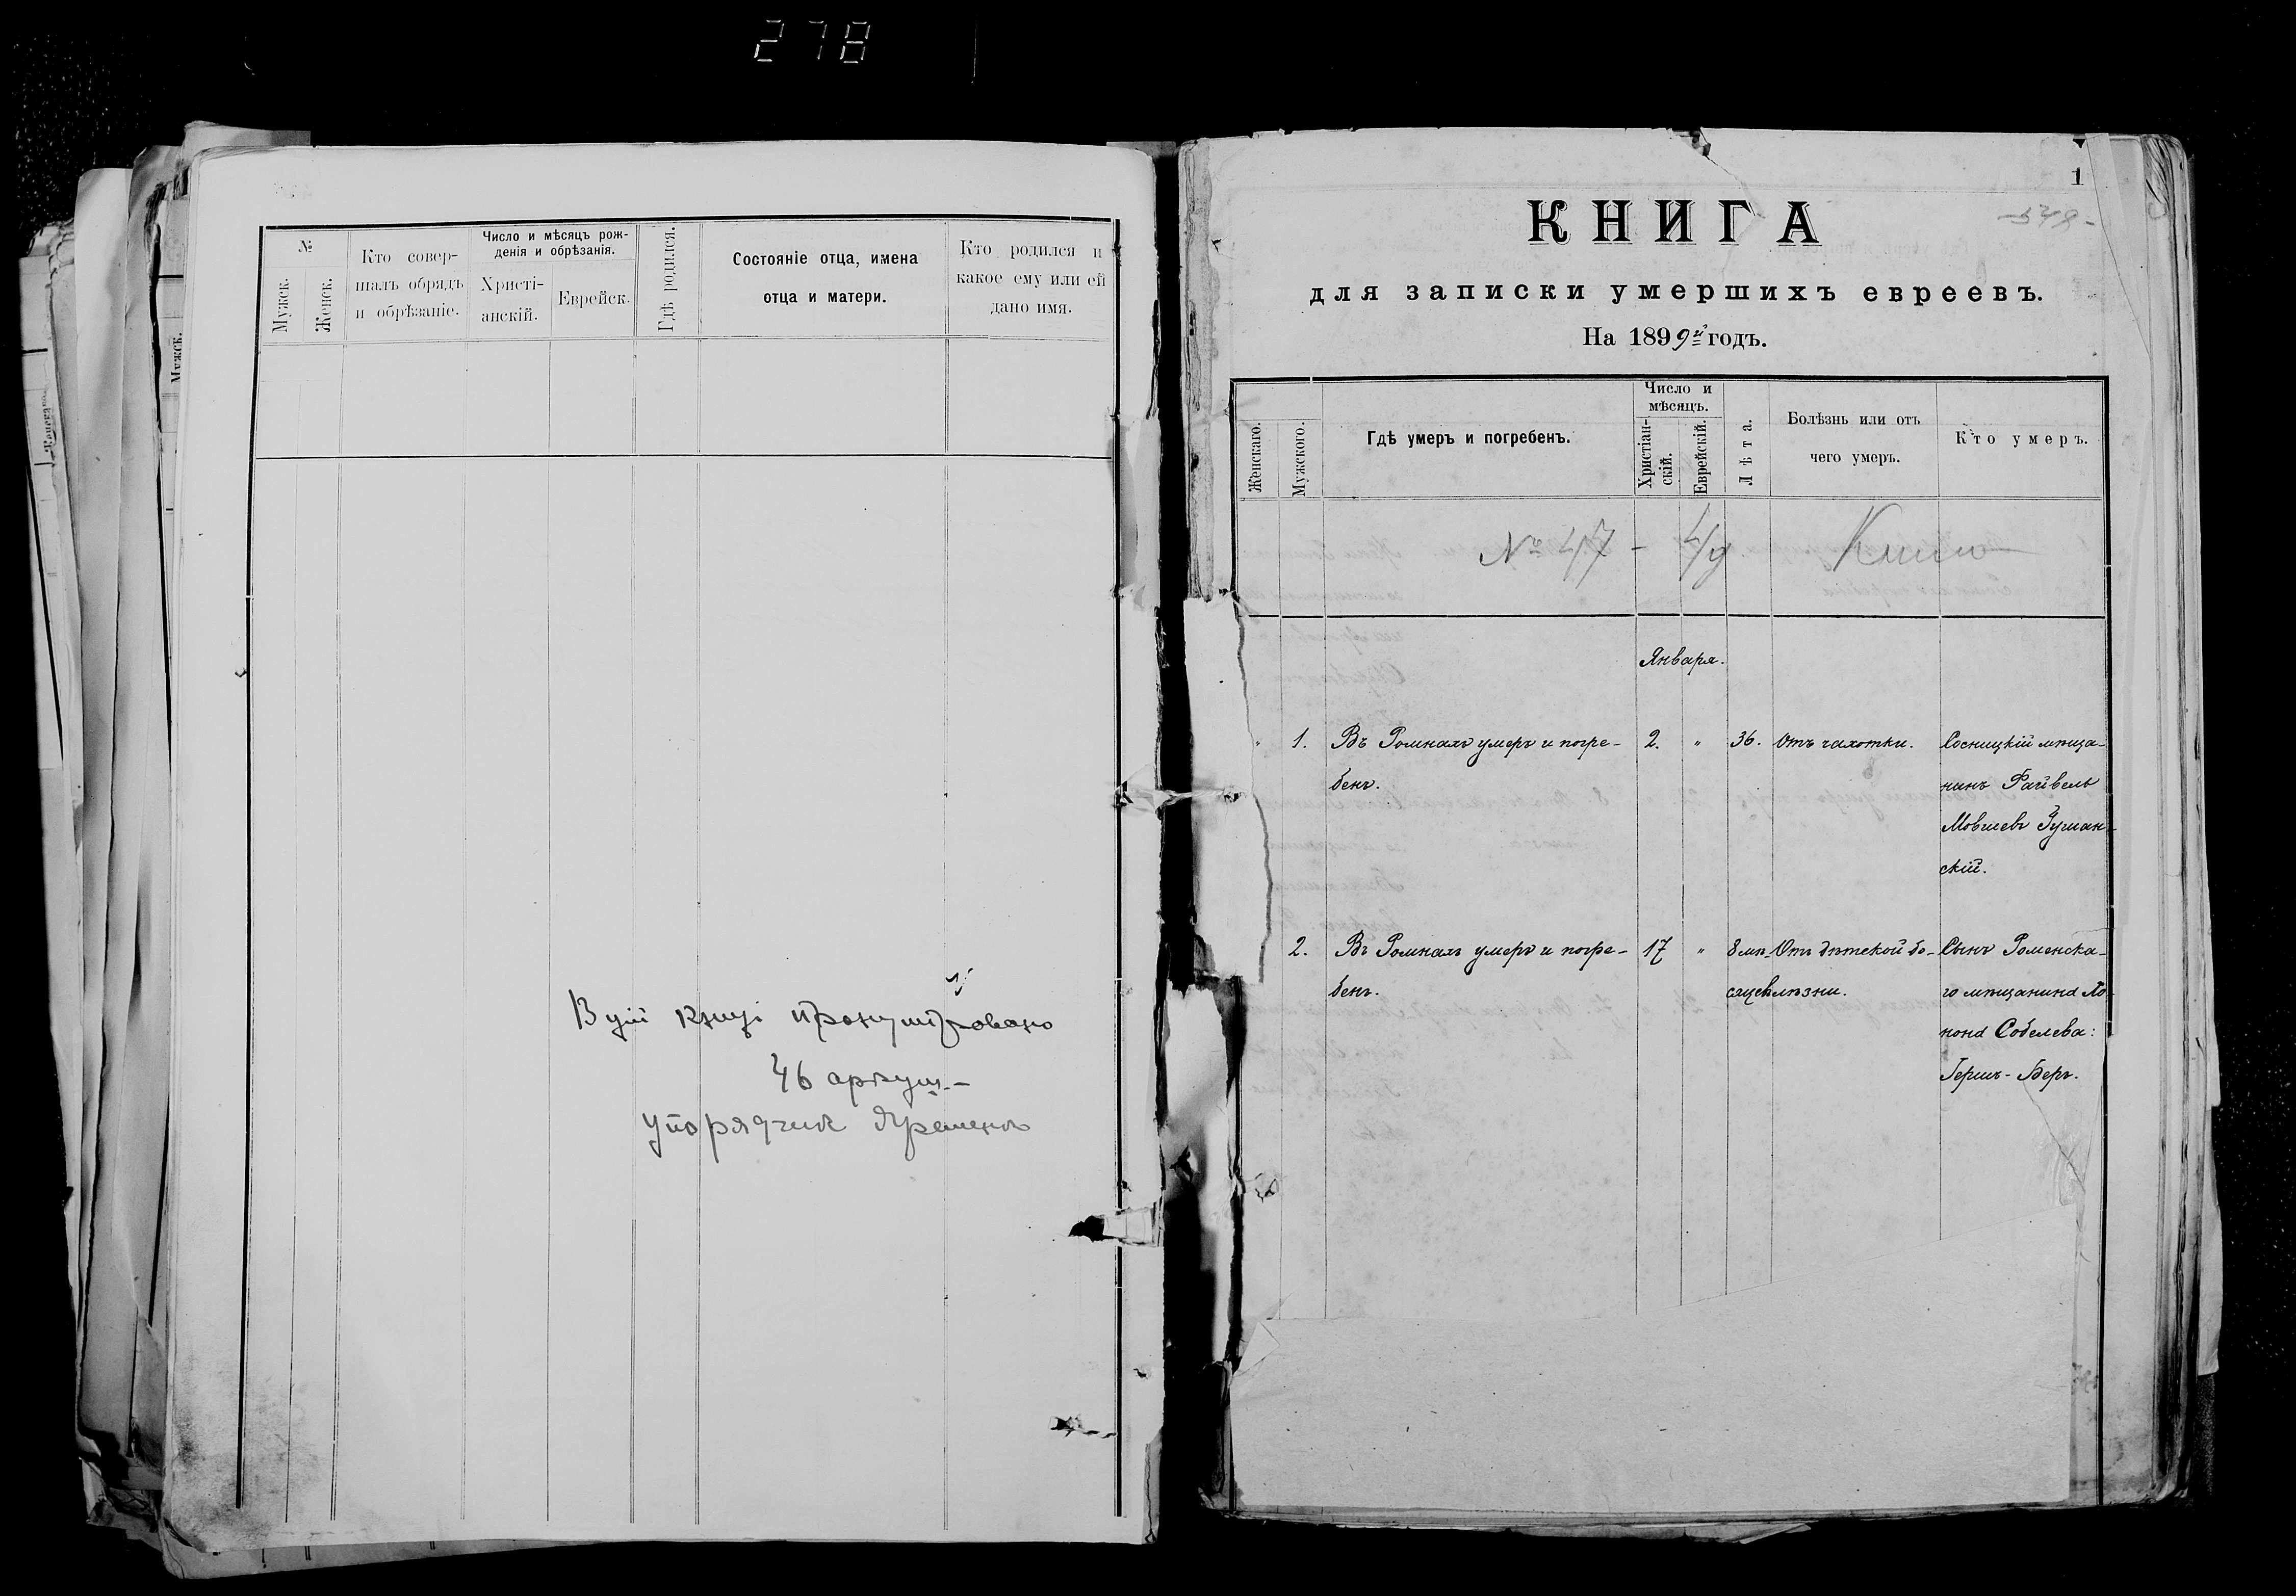 278
№
Мужск.
Женск.
Кто совер-
шалъ обрядъ
и обрѣзаніе.
Число и мѣсяцъ рож-
денія и обрѣзанія.
Христі-
анскій.
Еврейск.
Гдѣ родился.
Состояніе отца, имена
отца и матери.
Кто родился и
какое ему или ей
дано имя.
В цій книзі пронумеровано
46 аркуш.
упорядчик
Мужск.
1
КНИГА
для записки умершихъ евреевъ.
На 1899й годъ.
Женскаго.
Мужского.
Гдѣ умеръ и погребенъ.
Число и
мѣсяцъ.
Христіан-
скій.
Еврейскій.
Лѣта.
Болѣзнь или отъ
чего умеръ.
Кто умеръ.
Января.
1. Въ Ромнахъ умеръ и погре- 2. " 36. Отъ чахотки. Сосницкій мѣща-
бенъ. нинъ Файвель
Мовшевъ Гуман-
скій.
2. Въ Ромнахъ умеръ и погре- 17 " 8 мѣ- Отъ дѣтской бо- Сынъ Роменска-
бенъ. сяцев лѣзни. го мѣщанина
Собелева:
Гершъ-Беръ.